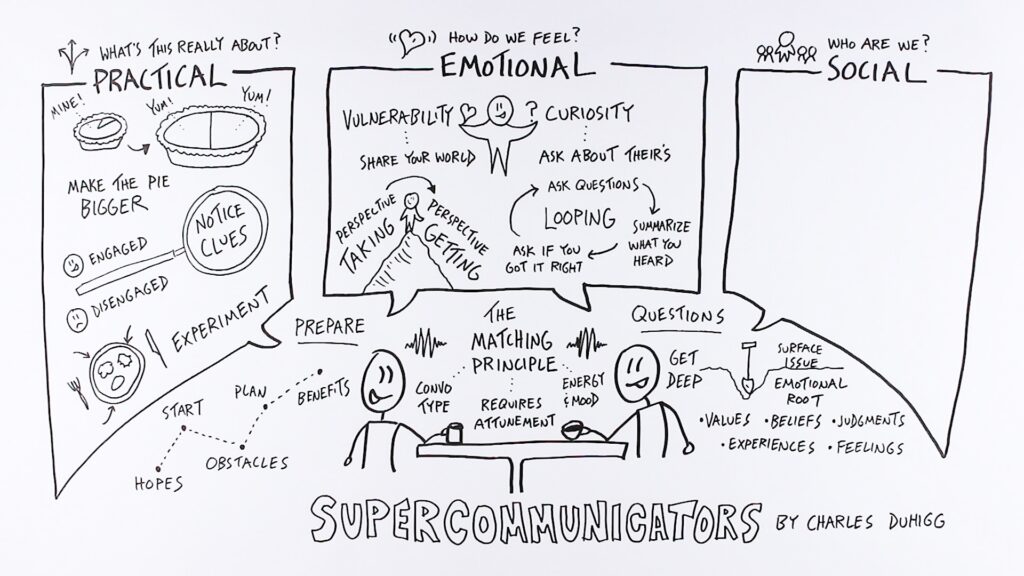 WHAT'S THIS REALLY ABOUT?
PRACTICAL
MINE!
YUM!
YUM!
MAKE THE PIE
BIGGER
NOTICE
CLUES
ENGAGED
DISENGAGED
EXPERIMENT
HOW DO WE FEEL?
EMOTIONAL
VULNERABILITY
? CURIOSITY
SHARE YOUR WORLD
ASK ABOUT THEIR'S
PERSPECTIVE
TAKING
PERSPECTIVE
GETTING
ASK QUESTIONS
LOOPING
SUMMARIZE
WHAT YOU
HEARD
ASK IF YOU
GOT IT RIGHT
WHO ARE WE?
SOCIAL
PREPARE
HOPES
START
OBSTACLES
PLAN
BENEFITS
THE
MATCHING
PRINCIPLE
CONVO
TYPE
REQUIRES
ATTUNEMENT
ENERGY
& MOOD
QUESTIONS
GET
DEEP
SURFACE
ISSUE
EMOTIONAL
ROOT
• VALUES • BELIEFS • JUDGMENTS
• EXPERIENCES • FEELINGS
SUPERCOMMUNICATORS BY CHARLES DUHIGG